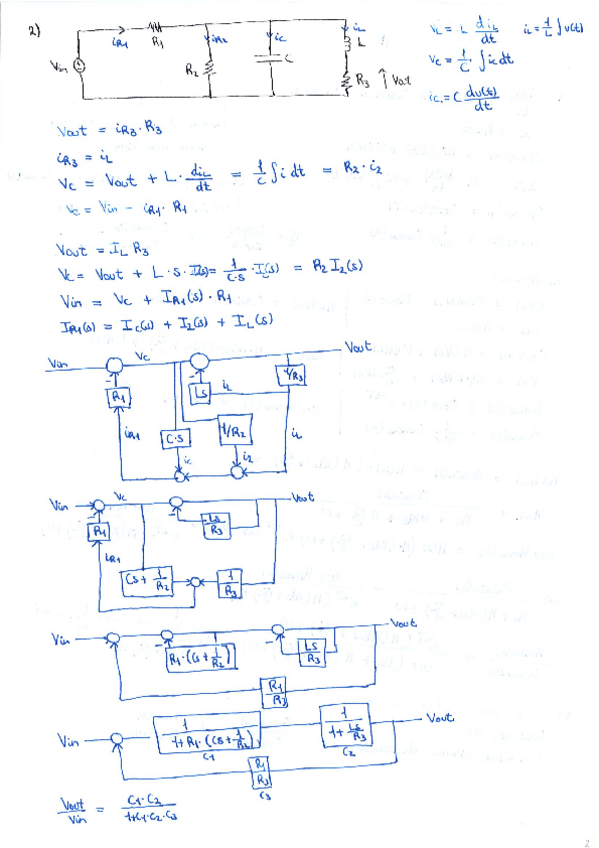 2)
iR1 R1 iR2 ic iL L
Vin R2 C R3 Vout
VL = L diL/dt iL = 1/L ∫v(t)
Vc = 1/C · ∫ic dt
ic = C dv(t)/dt
Vout = iR3 · R3
iR3 = iL
Vc = Vout + L · diL/dt = 1/C ∫i dt = R2 · i2
Vc = Vin - iR1 · R1
Vout = IL R3
Vc = Vout + L · s · I(s) = 1/C·s · I(s) = R2 I2(s)
Vin = Vc + IR1(s) · R1
IR1(s) = Ic(s) + I2(s) + IL(s)
Vin Vc Vout
- R1 - Ls iL 1/R3
iR1 C·s 1/R2 iL
ic i2
Vin Vc Vout
- R1 - Ls/R3
iR1
Cs + 1/R2 1/R3
Vin Vout
- R1·(Cs + 1/R2) - Ls/R3
R1/R3
Vin 1/1+R1·(Cs+1/R2) 1/1+Ls/R3 Vout
C1 C2
R1/R3
C3
Vout/Vin = C1·C2/1+C1·C2·C3
2